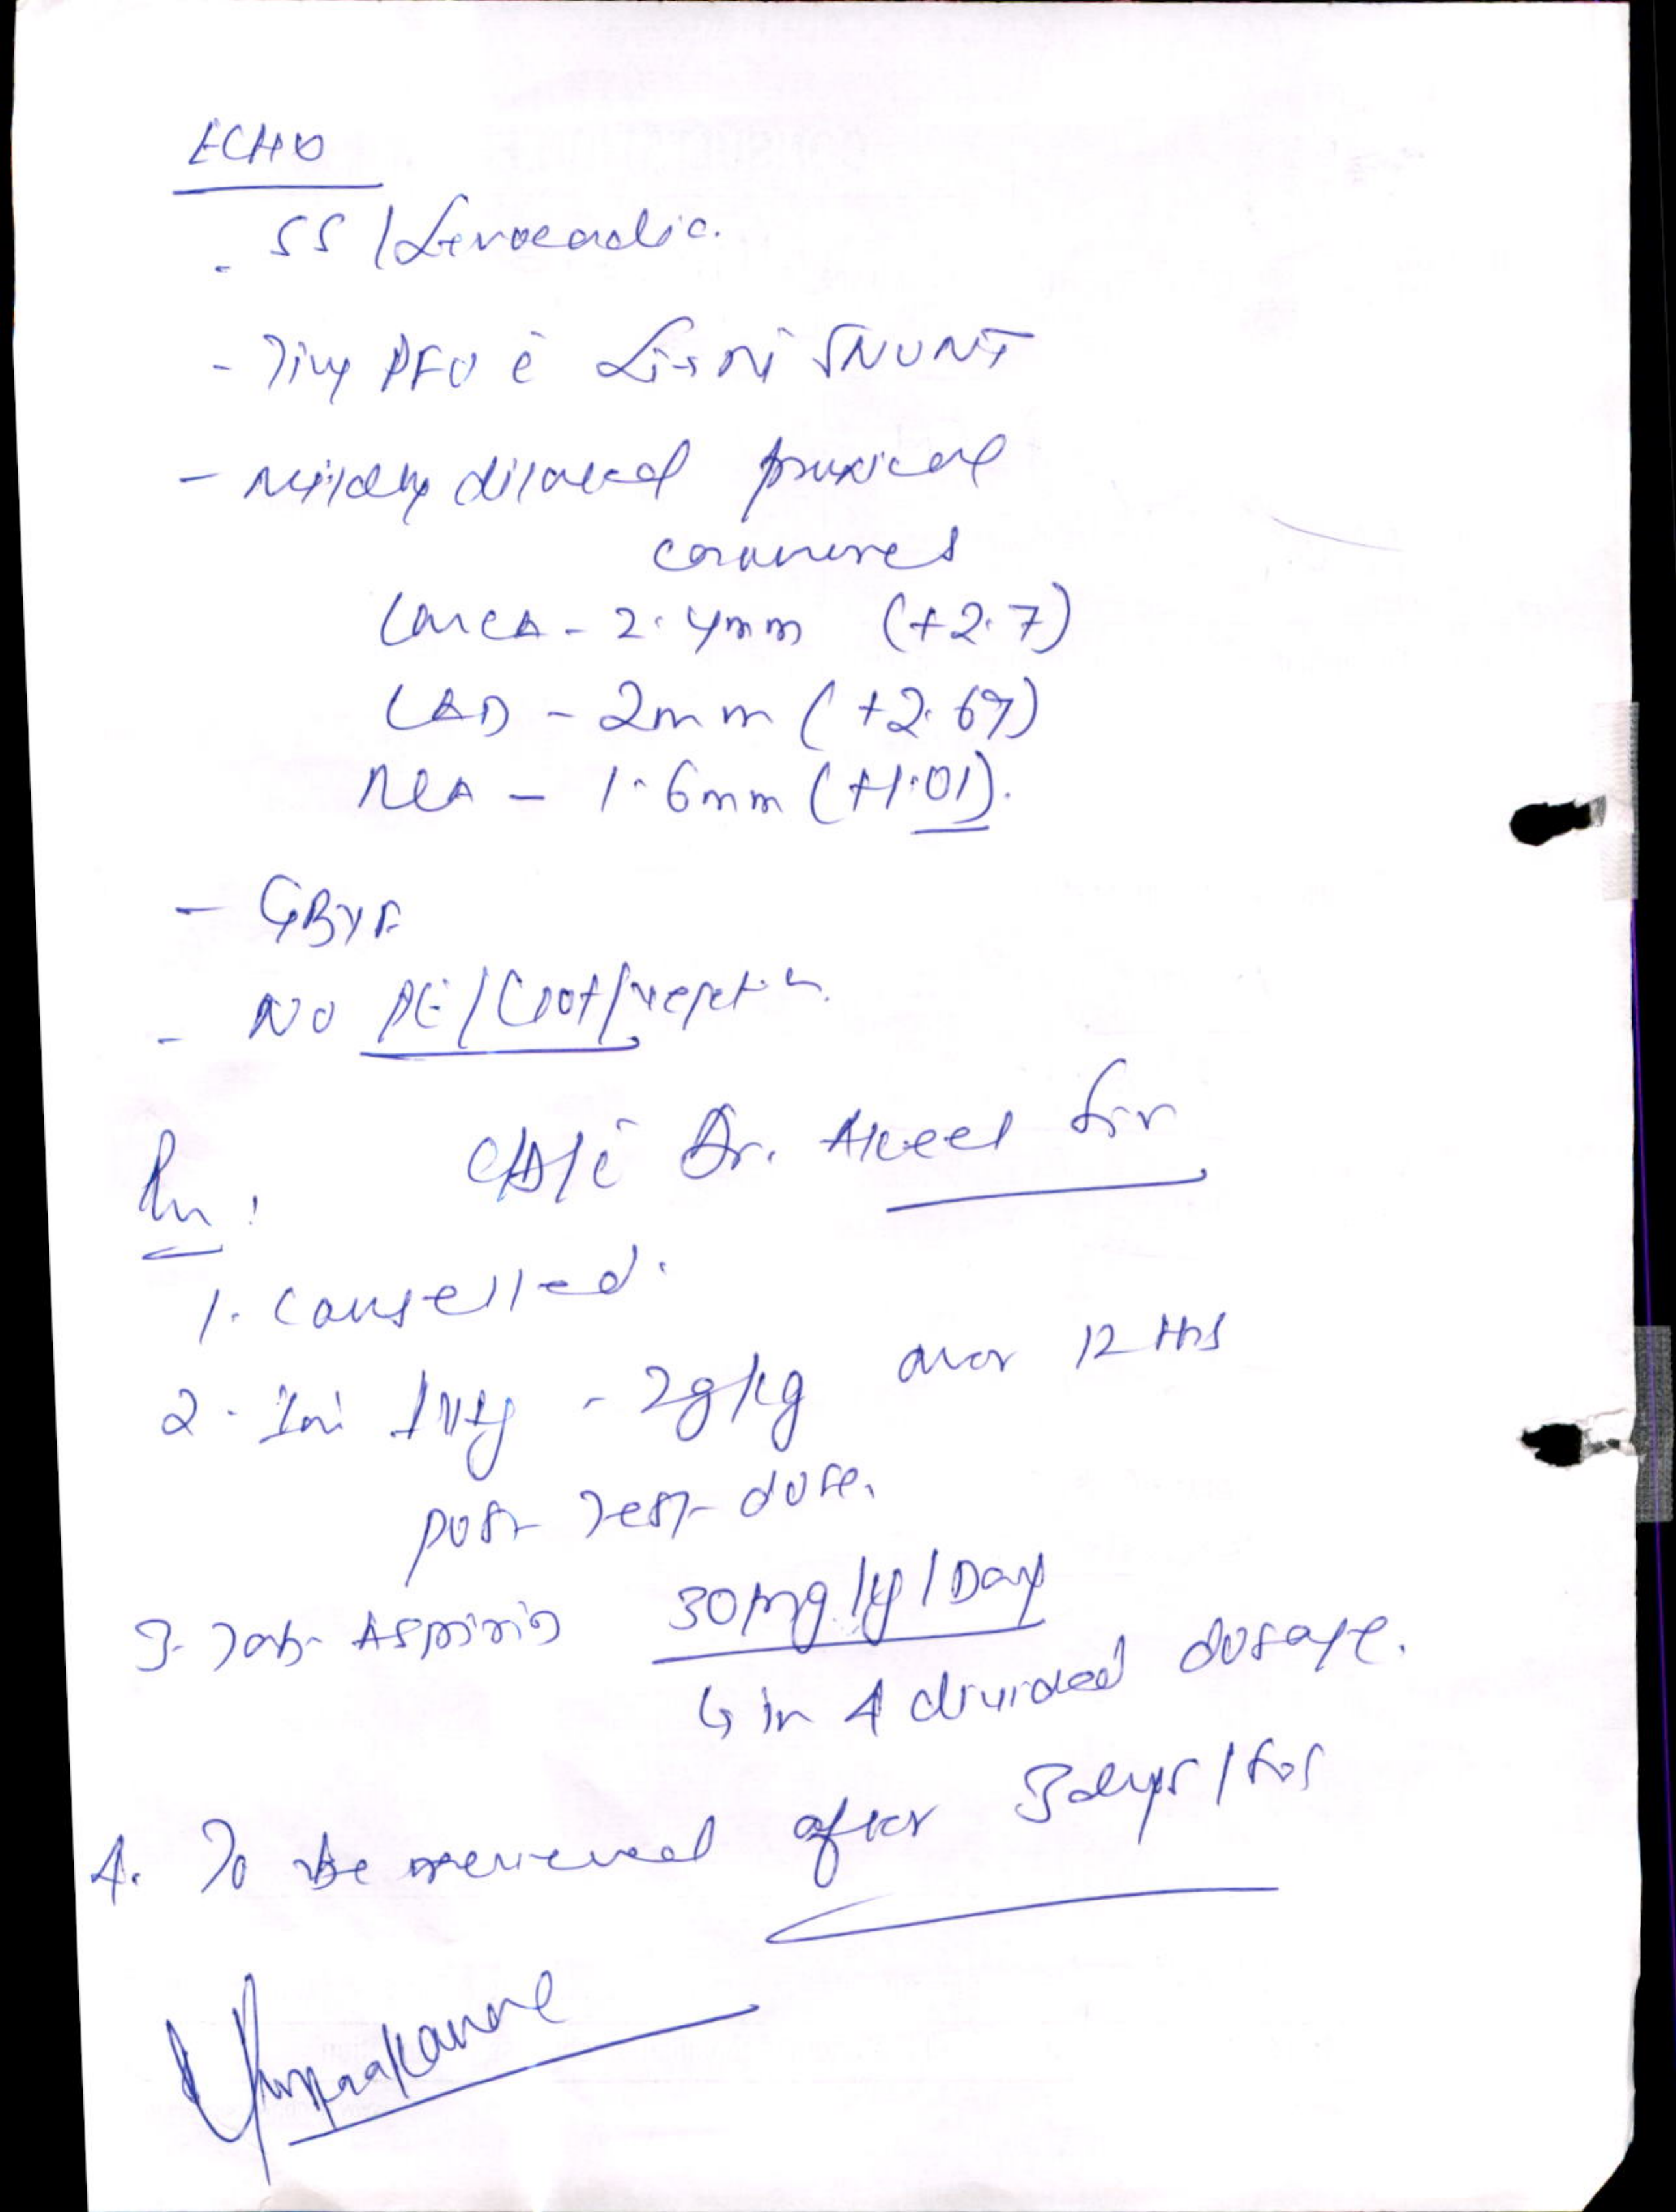 ECHO
- SS / Levocardia.
- Tiny PFO c̄ L→R SHUNT
- Mildly dilated proximal
coronaries
LMCA - 2.4mm (+2.7)
LAD - 2mm (+2.67)
RCA - 1.6mm (+1.01).
- GBVF
- NO PE/Clot/vegetation.
C/D/c̄ Dr. Aleel Sir
1. Counselled.
2. Inj IVIg - 2g/kg over 12 Hrs
post test dose.
3. Tab Aspirin 30mg/kg/Day
↳ in 4 divided dosage.
4. To be reviewed after 3days/SOS